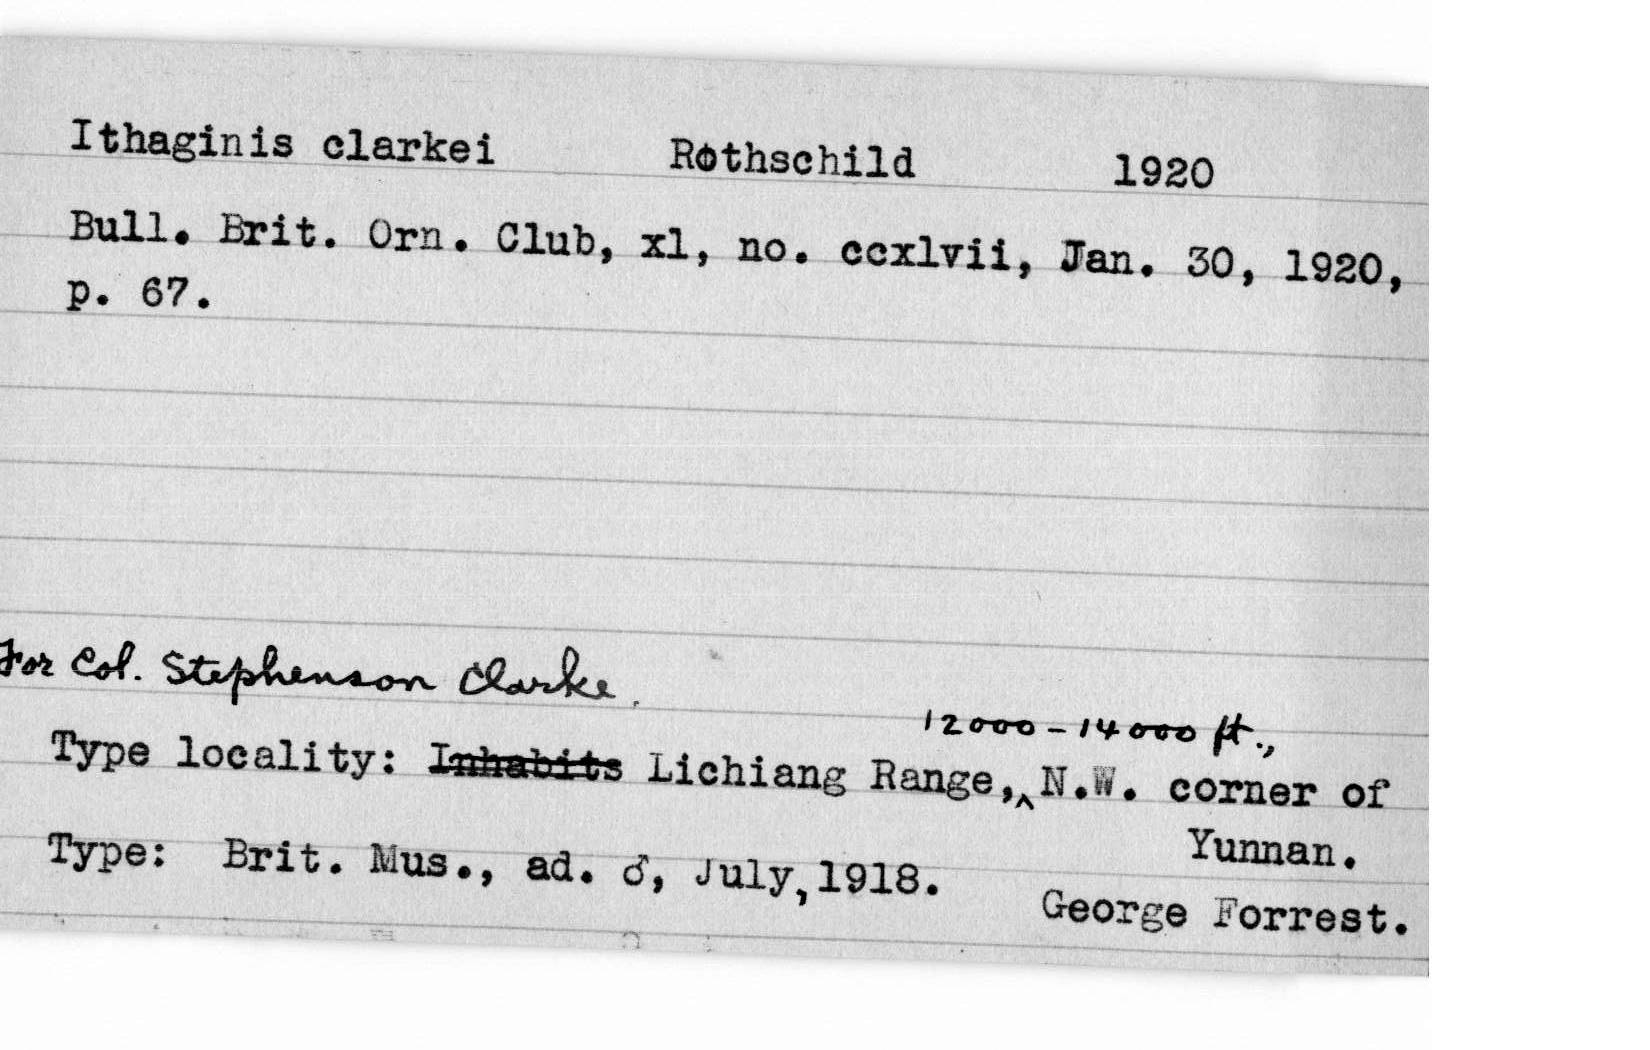 Ithaginis clarkei Rothschild 1920
Bull. Brit. Orn. Club, xl, no. ccxlvii, Jan. 30, 1920,
p. 67.
For Col. Stephenson Clarke.
12000-14000 ft.,
Type locality: Inhabits Lichiang Range,^ N.W. corner of
Yunnan.
Type: Brit. Mus., ad. ♂, July, 1918.
George Forrest.